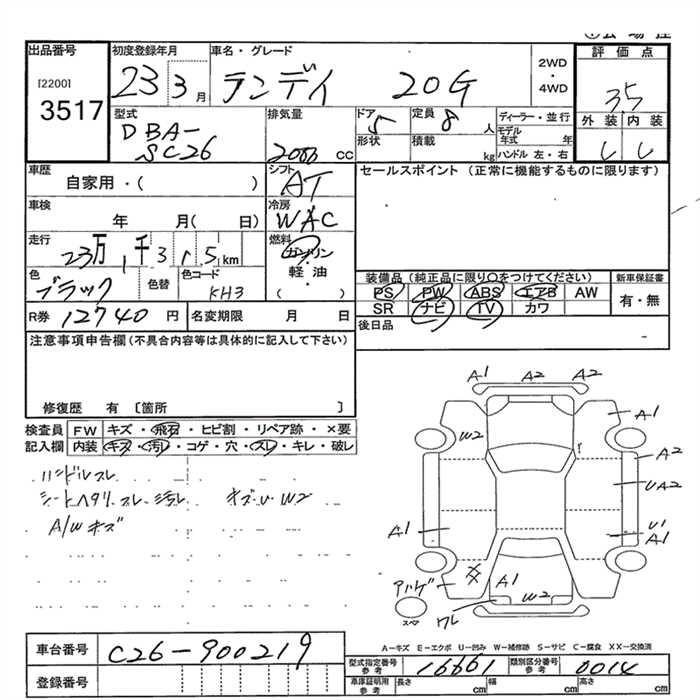 出品番号
[2200]
3517
初度登録年月
23 3月
車名・グレード
ランディ 20G
2WD
・
4WD
評価点
3.5
外装 内装
型式
DBA-
SC26
排気量
2000 CC
ドア
5
形状
定員
8 人
積載
kg
ディーラー・並行
モデル
年式 年
ハンドル 左・右
車歴
自家用・( )
シフト
AT
セールスポイント (正常に機能するものに限ります)
車検
年 月( 日)
冷房
WAC
走行
23万1千315km
燃料
ガソリン
・
軽油
・
( )
色
ブラック
色替
色コード
KH3
装備品 (純正品に限り○をつけてください)
新車保証書
PS PW ABS エアB AW
有・無
SR ナビ TV カワ
R券 12740 円
名変期限 月 日
後日品
注意事項申告欄(不具合内容等は具体的に記入して下さい)
修復歴 有 [箇所 ]
検査員
記入欄
FW キズ・飛石・ヒビ割・リペア跡・×要
内装 キズ・汚レ・コゲ・穴・スレ・キレ・破レ
ハンドルスレ
シートヘタリ スレ 汚レ キズ・U W2
A/Wキズ
A1 A2 A2
A1
W2
A2
UA2
U1
A1
A1
XX
A1
W2
ワレ
スペア
A-キズ E-エクボ U-凹み W-補修跡 S-サビ C-腐食 XX-交換済
車台番号 C26-900219
登録番号
型式指定番号
参考
16661
類別区分番号
参考
0014
車庫証明用
参考
長さ cm 幅 cm 高さ cm